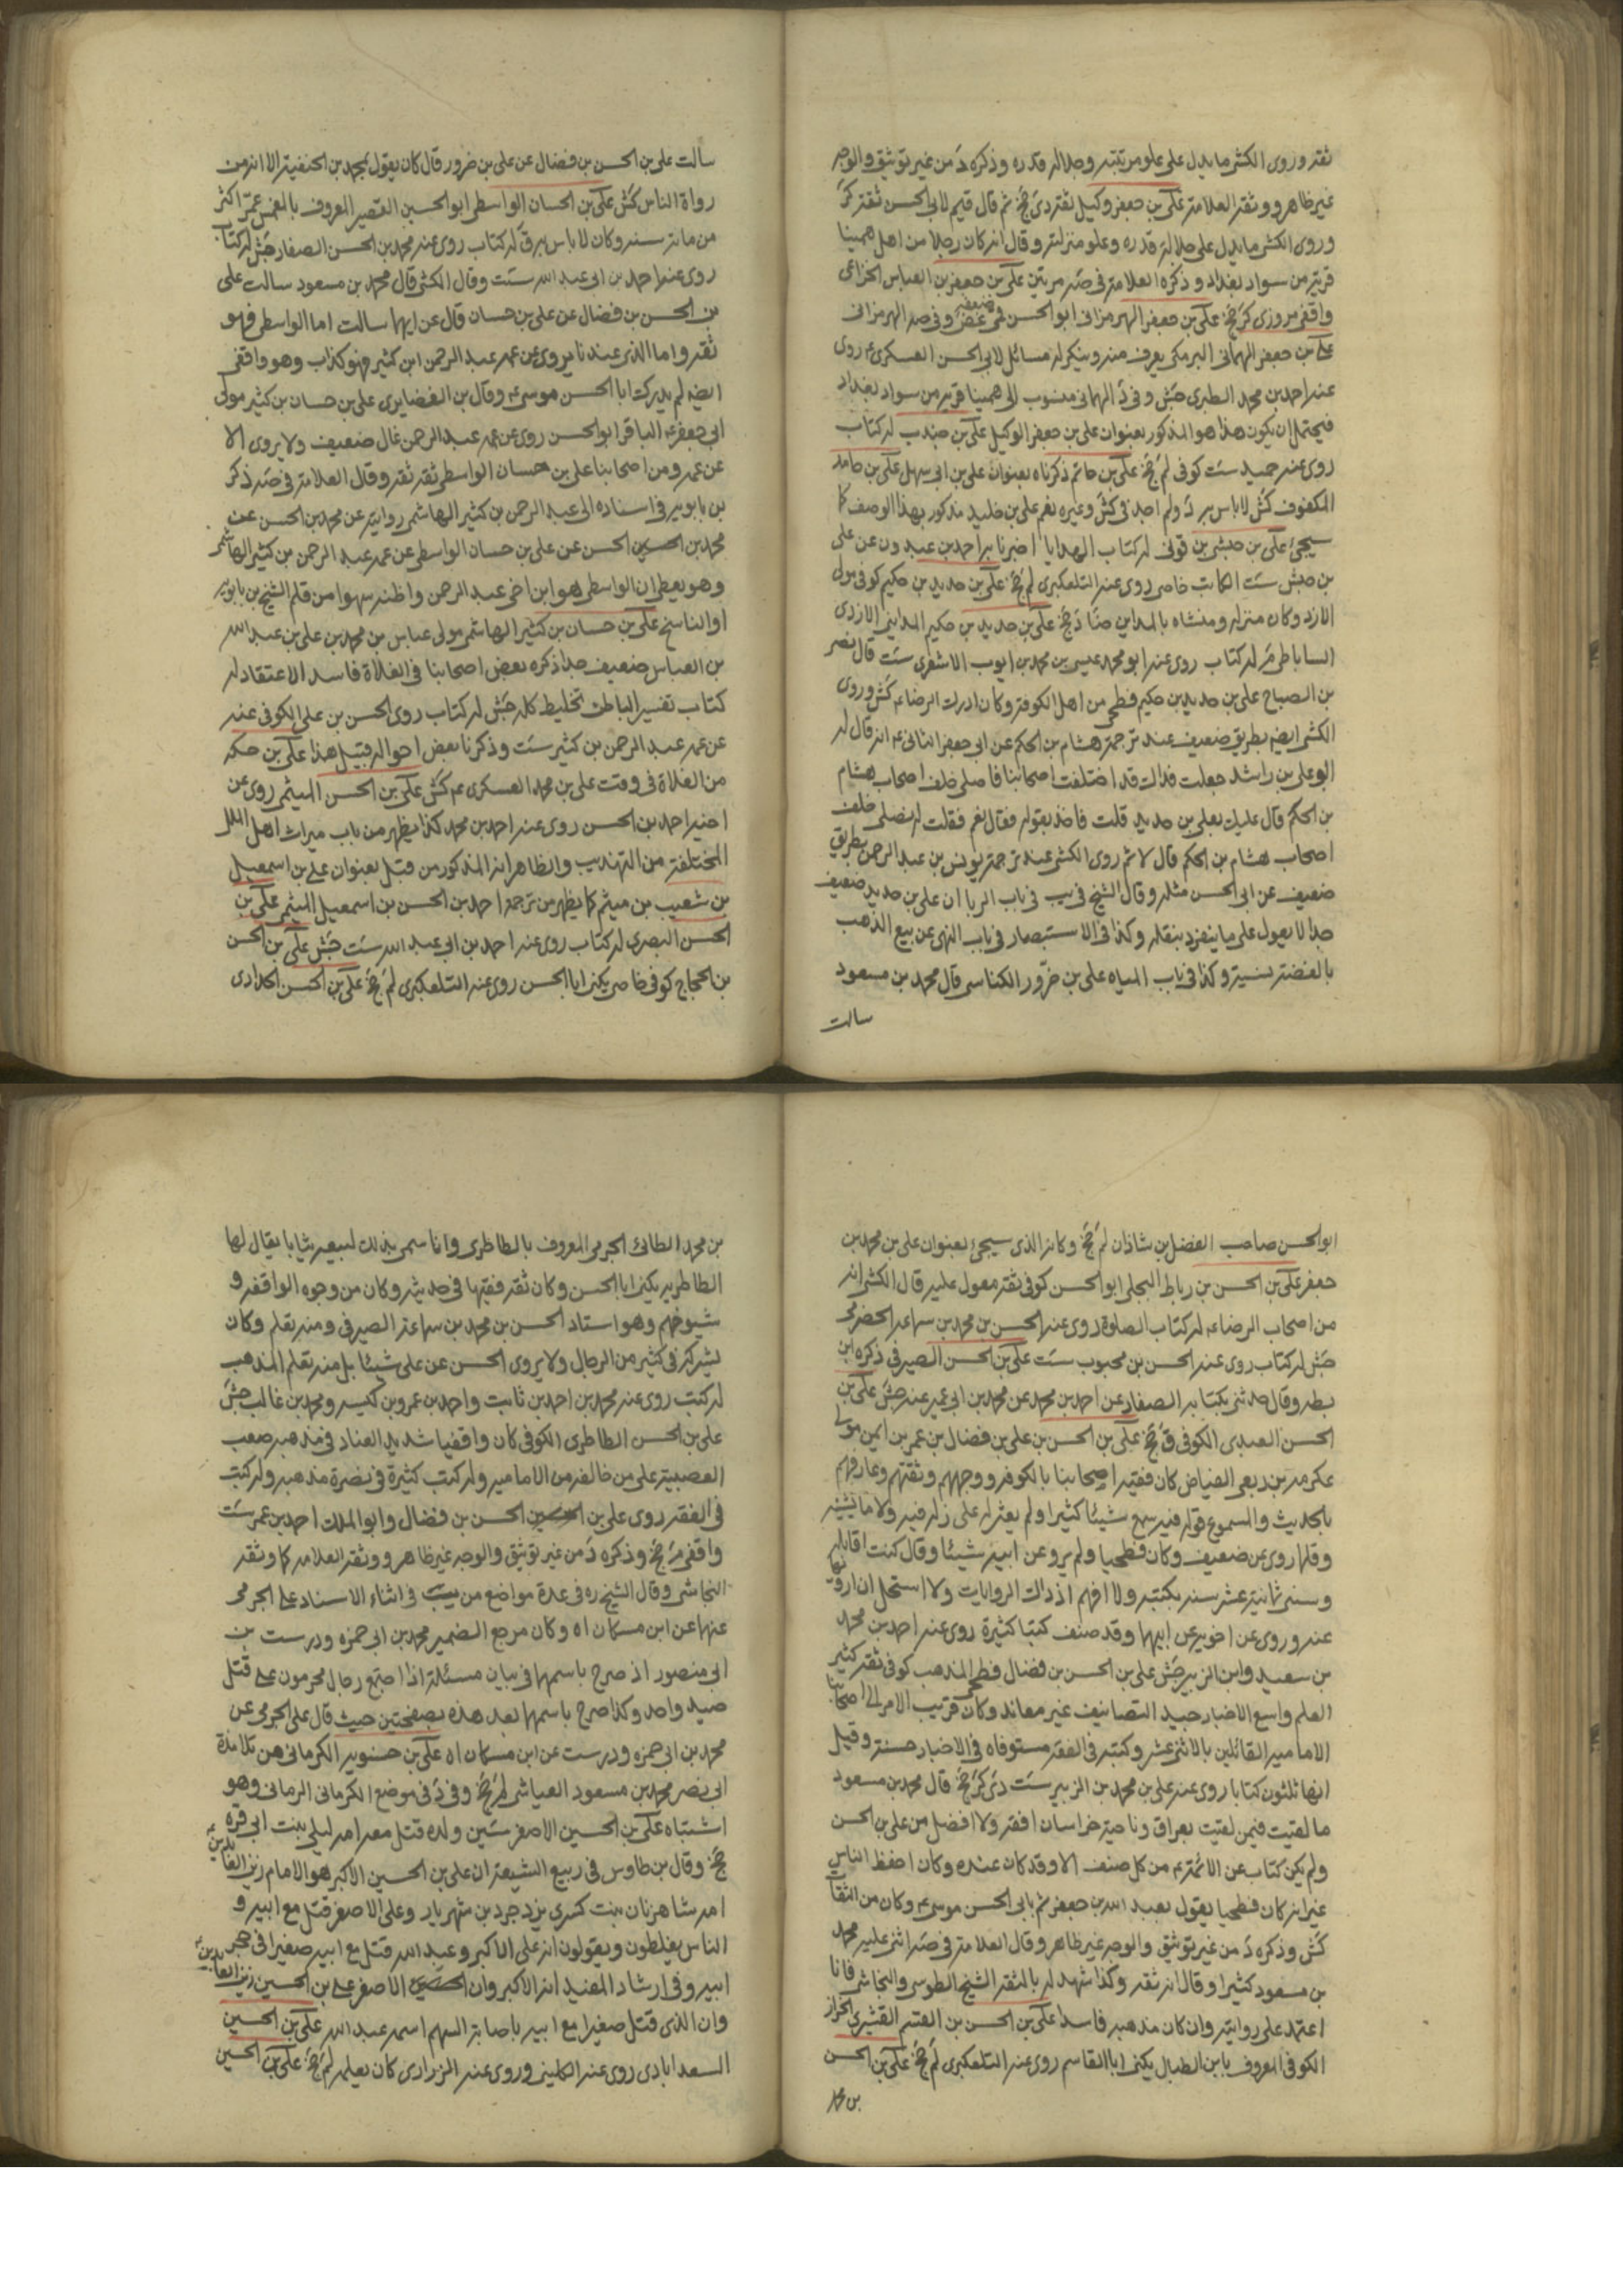 ثقة وروى الكشى ما يدل على علو مرتبته وجلالة قدره وذكره دَ من غير توثيق والوجه
غير ظاهر ووثقه العلامة على بن جعفر وكيل ثقة دى جخ ثم قال قيم لابى الحسن ثقة كر
وروى الكشى ما يدل على جلالة قدره وعلو منزلته وقال انه كان رجلا من اهل همينا
قرية من سواد بغداد وذكره العلامة فى صه مرتين على بن جعفر بن العباس الخزاعى
واقفى مروزى كر جخ على بن جعفر الهرمزانى ابو الحسن ضعيف غض وفى صه الهرمزانى
على بن جعفر الهمانى البرمكى يعرف منه وينكر له مسائل لابى الحسن العسكرى ع روى
عنه احمد بن محمد الطبرى جش وفى د الهمانى منسوب الى همينا قرية من سواد بغداد
فيحتمل ان يكون هذا هو المذكور بعنوان على بن جعفر الوكيل على بن جندب له كتاب
روى عنه حميد ست كوفى لم جخ على بن حاتم ذكرناه بعنوان على بن ابى سهل على بن حامد
المكفوف كش لا باس به د ولم اجد فى كش وغيره نعم على بن خليد مذكور بهذا الوصف كما
سيجئ على بن حبشى بن قونى له كتاب الهدايا اخبرنا به احمد بن عبدون عن على
بن حبش ست الكاتب خاص روى عنه التلعكبرى لم جخ على بن حديد بن حكيم كوفى مولى
الازد وكان منزله ومنشاه بالمداين ضا د جخ على بن حديد بن حكيم المداينى الازدى
الساباطى له كتاب روى عنه ابو محمد عيسى بن محمد بن ايوب الاشعرى ست قال نصر
بن الصباح على بن حديد بن حكيم فطحى من اهل الكوفة وكان ادرك الرضا ع كش وروى
الكشى ايضه بطريق ضعيف عند ترجمة هشام بن الحكم عن ابى جعفر الثانى ع انه قال له
ابو على بن راشد جعلت فداك قد اختلفت اصحابنا فاصلى خلف اصحاب هشام
بن الحكم قال عليك بعلى بن حديد قلت فاخذ بقوله فقال نعم فقلت له نصلى خلف
اصحاب هشام بن الحكم قال لا ثم روى الكشى عند ترجمة يونس بن عبد الرحمن بطريق
ضعيف عن ابى الحسن مثله وقال الشيخ فى يب فى باب الربا ان على بن حديد ضعيف
جدا لا يعول على ما ينفرد بنقله وكذا فى الاستبصار فى باب النهى عن بيع الذهب
بالفضة نسية وكذا فى باب المياه على بن حزور الكناسى قال محمد بن مسعود
سالت
سالت على بن الحسن بن فضال عن على بن حزور قال كان يقول بمحمد بن الحنفية الا انه من
رواة الناس كش على بن الحسان الواسطى ابو الحسين القصير المعروف بالمنمس عمّر اكثر
من مائة سنة وكان لا باس به ق له كتاب روى عنه محمد بن الحسن الصفار جش له كتاب
روى عنه احمد بن ابى عبد الله ست وقال الكشى قال محمد بن مسعود سالت على
بن الحسن بن فضال عن على بن حسان قال عن ايهما سالت اما الواسطى فهو
ثقة واما الذى عندنا يروى عن عمه عبد الرحمن ابن كثير فهو كذاب وهو واقفى
ايضه لم يدرك ابا الحسن موسى ع وقال بن الغضايرى على بن حسان بن كثير مولى
ابى جعفر ع الباقر ابو الحسن روى عن عمه عبد الرحمن غال ضعيف ولا يروى الا
عن عمه ومن اصحابنا على بن حسان الواسطى ثقة ثقة وقال العلامة فى صه ذكر
بن بابويه فى اسناده الى عبد الرحمن بن كثير الهاشمى روايته عن محمد بن الحسن عن
محمد بن الحسن عن على بن حسان الواسطى عن عمه عبد الرحمن بن كثير الهاشمى
وهو يعطى ان الواسطى هو ابن اخى عبد الرحمن واظنه سهوا من قلم الشيخ بن بابويه
او الناسخ على بن حسان بن كثير الهاشمى مولى عباس بن محمد بن على بن عبد الله
بن العباس ضعيف جدا ذكره بعض اصحابنا فى الغلاة فاسد الاعتقاد له
كتاب تفسير الباطن تخليط كله جش له كتاب روى الحسن بن على الكوفى عنه
عن عمه عبد الرحمن بن كثير ست وذكرنا بعض احواله قبيل هذا على بن حسكه
من الغلاة فى وقت على بن محمد العسكرى ع كش على بن الحسن الميثمى روى عن
اخيه احمد بن الحسن روى عنه احمد بن محمد كذا يظهر من باب ميراث اهل الملل
المختلفة من التهذيب والظاهر انه المذكور من قبل بعنوان على بن اسمعيل
بن شعيب بن ميثم كما يظهر من ترجمة احمد بن الحسن بن اسمعيل الميثمى على بن
الحسن البصرى له كتاب روى عنه احمد بن ابى عبد الله ست جش على بن الحسن
بن الحجاج كوفى خاصى يكنى ابا الحسن روى عنه التلعكبرى لم جخ على بن الحسن الحدادى
ابو الحسن صاحب الفضل بن شاذان لم جخ وكانه الذى سيجئ بعنوان على بن محمد بن
جعفر على بن الحسن بن رباط البجلى ابو الحسن كوفى ثقة معول عليه قال الكشى انه
من اصحاب الرضا ع له كتاب الصلوة روى عنه الحسن بن محمد بن سماعة الحضرمى
جش له كتاب روى عنه الحسن بن محبوب ست على بن الحسن الصيرفى ذكره ابن
بطه وقال حدثنى بكتابه الصفار عن احمد بن محمد عن محمد بن ابى عمير عنه جش على بن
الحسن العبدى الكوفى ق جخ على بن الحسن بن على بن فضال بن عمر بن ايمن مولى
عكرمة بن ربعى الفياض كان فقيه اصحابنا بالكوفه ووجههم وثقتهم وعارفهم
بالحديث والمسموع قوله فيه سمع شيئا كثيرا ولم يعثر له على زلة فيه ولا ما يشينه
وقلما روى عن ضعيف وكان فطحيا ولم يرو عن ابيه شيئا وقال كنت اقابله
وسنى ثمانية عشر سنة بكتبه ولا افهم اذ ذاك الروايات ولا استحل ان ارويها
عنه وروى عن اخويه عن ابيهما وقد صنف كتبا كثيرة روى عنه احمد بن محمد
بن سعيد وابن الزبير جش على بن الحسن بن فضال فطحى المذهب كوفى ثقة كثير
العلم واسع الاخبار جيد التصانيف غير معاند وكان قريب الامر الى اصحابنا
الامامية القائلين بالاثنى عشر وكتبه فى الفقه مستوفاه فى الاخبار حسنة وقيل
انها ثلثون كتابا روى عنه على بن محمد بن الزبير ست دى كر جخ قال محمد بن مسعود
ما لقيت فيمن لقيت بعراق وناحية خراسان افقه ولا افضل من على بن الحسن
ولم يكن كتاب عن الائمة ع من كل صنف الا وقد كان عنده وكان احفظ الناس
غير انه كان فطحيا يقول بعبد الله بن جعفر ثم بابى الحسن موسى ع وكان من الثقات
كش وذكره دَ من غير توثيق والوجه غير ظاهر وقال العلامة فى صه اثنى عليه محمد
بن مسعود كثيرا وقال انه ثقة وكذا شهد له بالثقة الشيخ الطوسى والنجاشى فانا
اعتمد على روايته وان كان مذهبه فاسدا على بن الحسن بن القسم القشيرى الخزاز
الكوفى المعروف بابن الطبال يكنى ابا القاسم روى عنه التلعكبرى لم جخ على بن الحسن
بن محمد
بن محمد الطائى الجرمى المعروف بالطاطرى وانما سمى بذلك لبيعه ثيابا يقال لها
الطاطرية يكنى ابا الحسن وكان ثقة فقيها فى حديثه وكان من وجوه الواقفة و
شيوخهم وهو استاد الحسن بن محمد بن سماعة الصيرفى ومنه تعلم وكان
يشركه فى كثير من الرجال ولا يروى الحسن عن على شيئا بل منه تعلم المذهب
له كتب روى عنه محمد بن احمد بن ثابت واحمد بن عمرو بن كيسبه ومحمد بن غالب جش
على بن الحسن الطاطرى الكوفى كان واقفيا شديد العناد فى مذهبه صعب
العصبية على من خالفه من الامامية وله كتب كثيرة فى نصرة مذهبه وله كتب
فى الفقه روى على بن الحسن بن فضال وابو الملك احمد بن عمر ست
واقفى م جخ وذكره دَ من غير توثيق والوجه غير ظاهر ووثقه العلامه كما وثقه
النجاشى وقال الشيخ ره فى عدة مواضع من يب فى اثناء الاسناد على الجرمى
عنهما عن ابن مسكان اه وكان مرجع الضمير محمد بن ابى حمزه ودرست بن
ابى منصور اذ صرح باسمهما فى بيان مسئلة اذا اجتمع رجال محرمون على قتل
صيد واحد وكذا صرح باسمهما بعد هذه بصفحتين حيث قال على الجرمى عن
محمد بن ابى حمزه ودرست عن ابن مسكان اه على بن حسنويه الكرمانى من تلامذة
ابى نصر محمد بن مسعود العياشى لم جخ وفى د فى موضع الكرمانى الرمانى وهو
اشتباه على بن الحسين الاصغر سين ولده قتل معه امه ليلى بنت ابى قره
جخ وقال بن طاوس فى ربيع الشيعة ان على بن الحسين الاكبر هو الامام زين العابدين ع
امه شاه زنان بنت كسرى يزدجرد بن شهريار وعلى الاصغر قتل مع ابيه و
الناس يغلطون ويقولون انه على الاكبر وعبد الله قتل مع ابيه صغيرا فى حجر
ابيه وفى ارشاد المفيد انه الاكبر وان الاصغر على بن الحسين زين العابدين ع
وان الذى قتل صغيرا مع ابيه باصابة السهم اسمه عبد الله على بن الحسين
السعدابادى روى عنه الكلينى وروى عنه الزرارى كان يعلمه لم جخ على بن الحسين